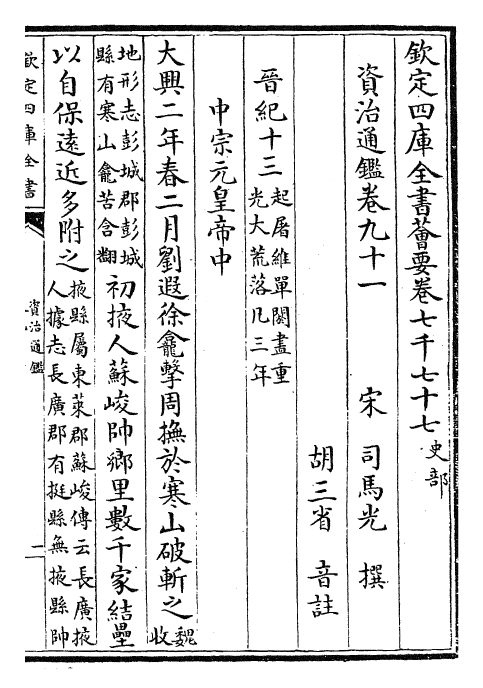 欽定四庫全書薈要卷七千七十七史部
資治通鑑卷九十一
宋 司馬光 撰
胡三省 音註
晉紀十三起屠維單閼盡重光大荒落凡三年
中宗元皇帝中
大興二年春二月劉遐徐龕擊周撫於寒山破斬之魏收
地形志彭城郡彭城縣有寒山龕苦含翻初掖人蘇峻帥鄉里數千家結壘
以自保遠近多附之掖縣屬東萊郡蘇峻傳云長廣掖人據志長廣郡有挺縣無掖縣帥
欽定四庫全書
資治通鑑
一